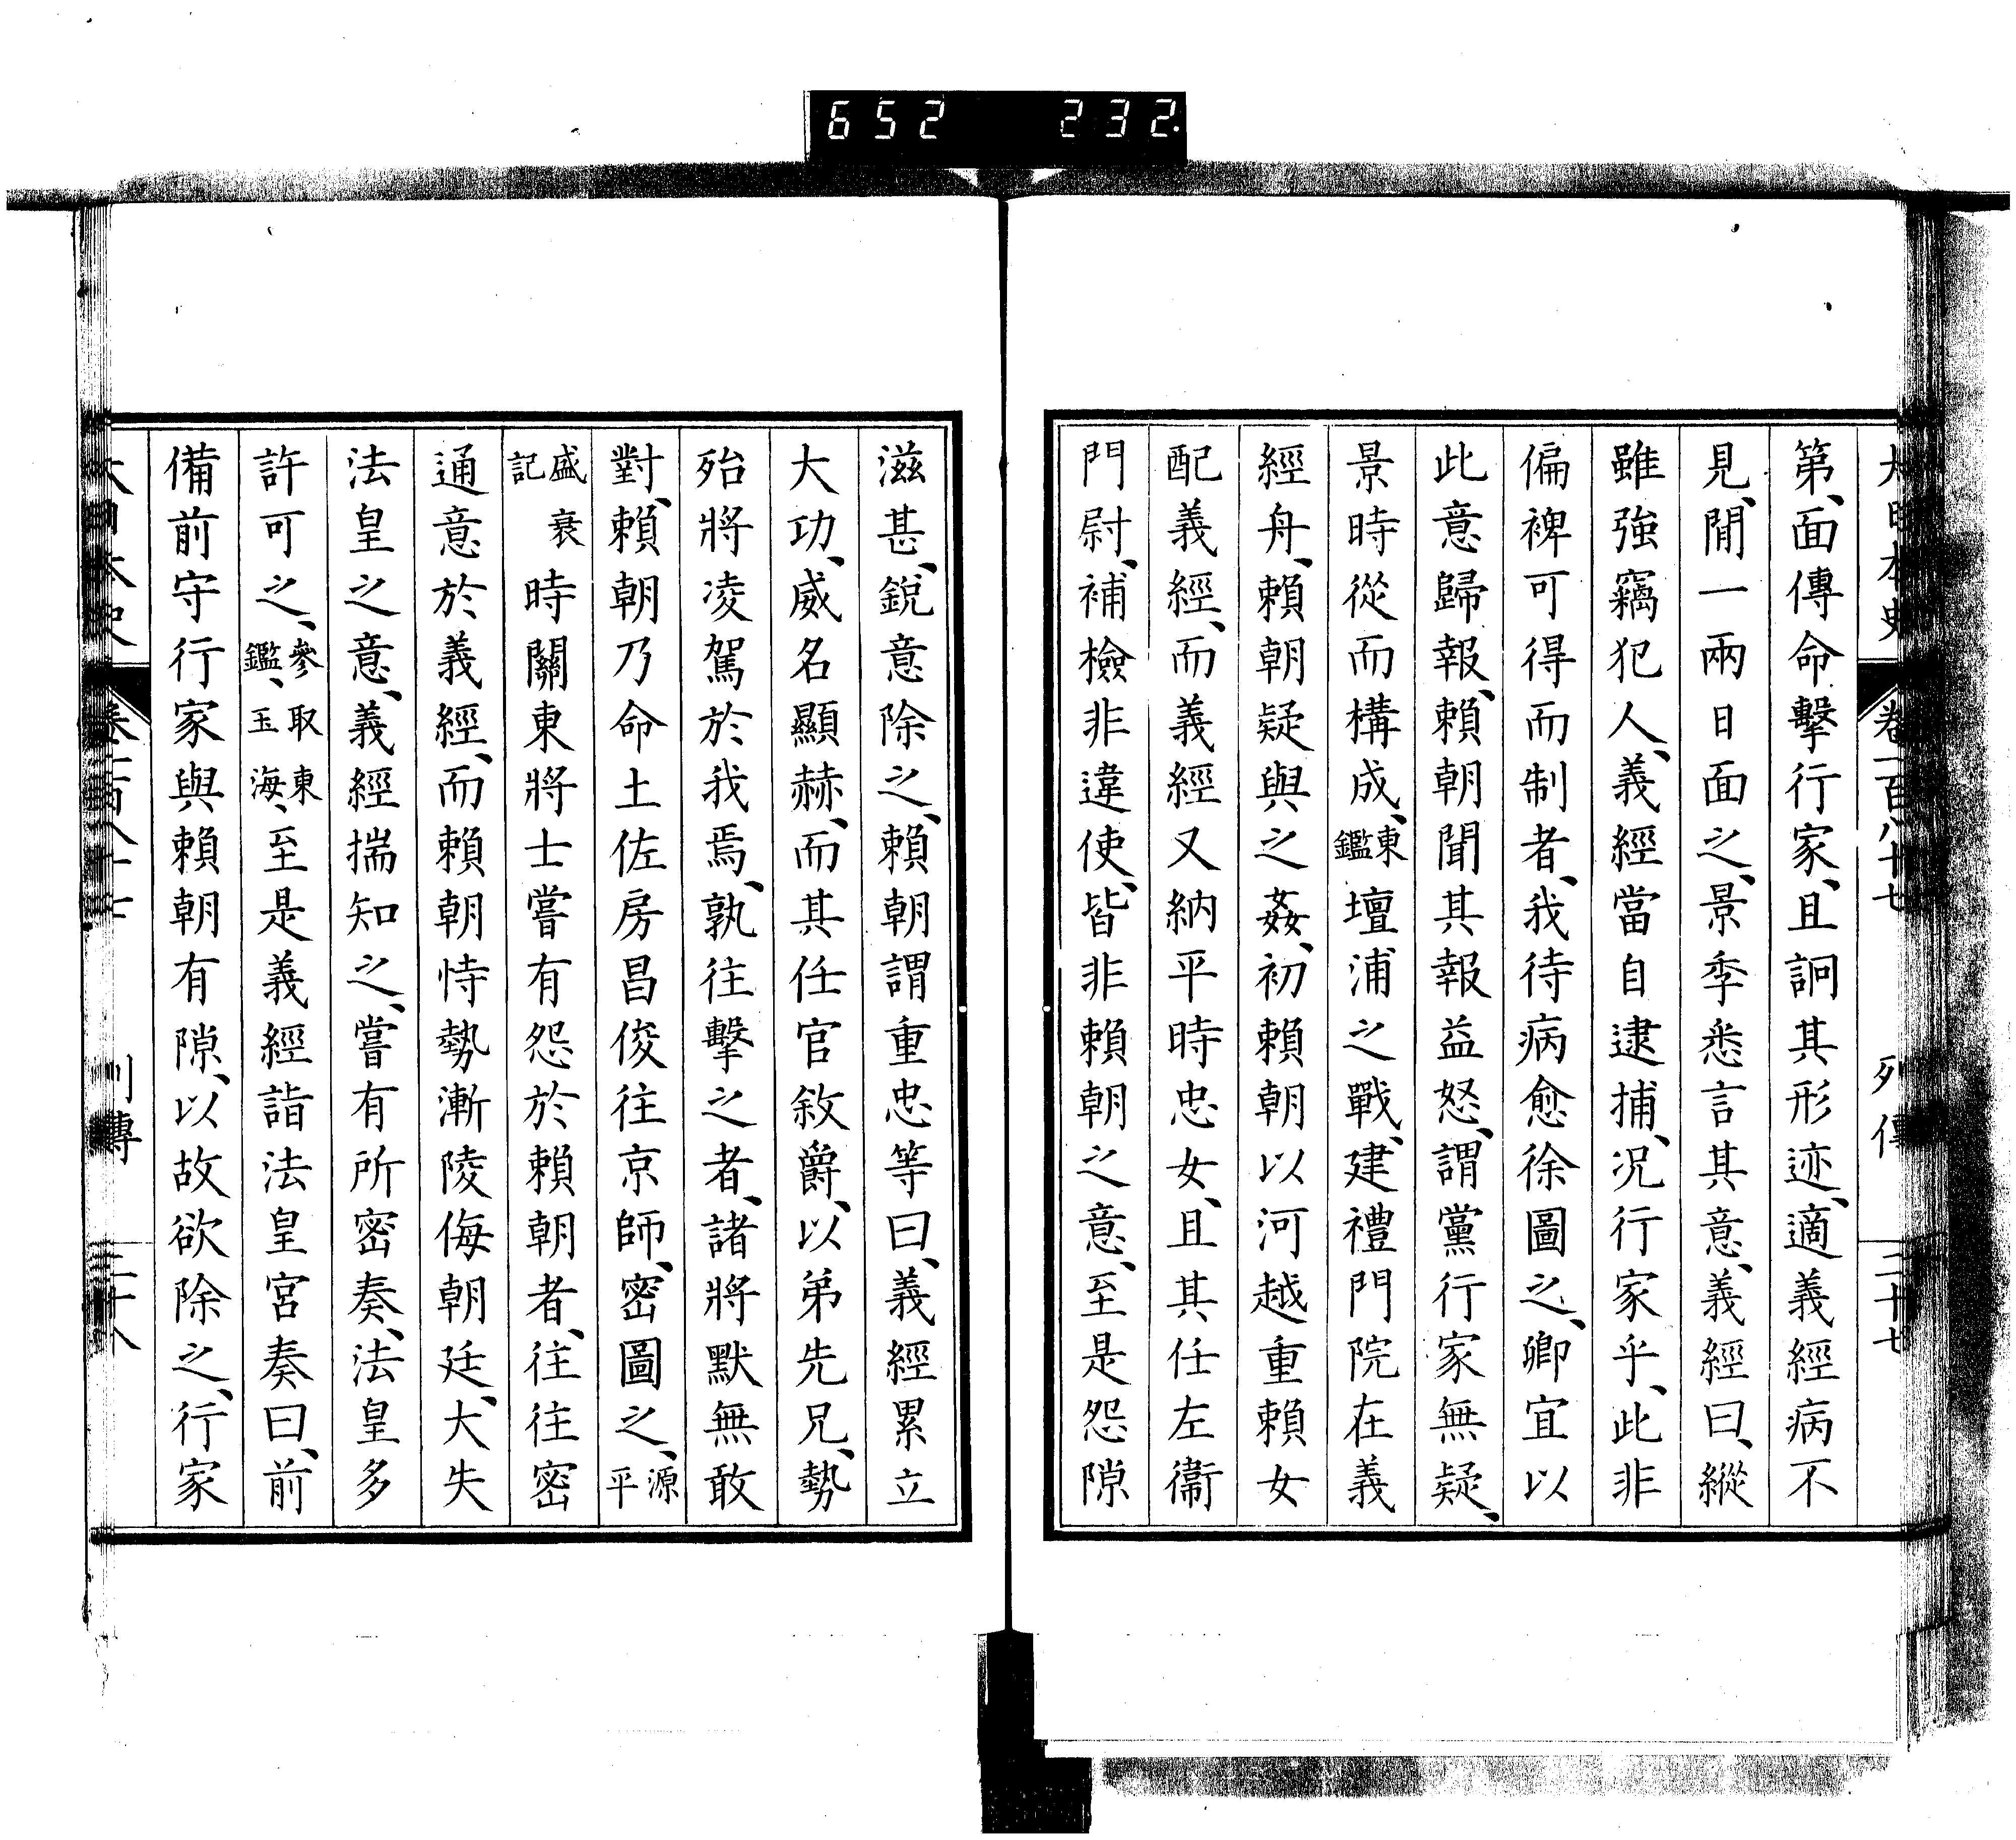 652 232.
大日本史 卷一百八十七 列傳 三十七
第、面傳命擊行家、且詗其形迹、適義經病不
見、閒一兩日面之、景季悉言其意、義經曰、縱
雖強竊犯人、義經當自逮捕、况行家乎、此非
偏裨可得而制者、我待病愈徐圖之、卿宜以
此意歸報、賴朝聞其報益怒、謂黨行家無疑、
景時從而構成、東鑑壇浦之戰、建禮門院在義
經舟、賴朝疑與之姦、初賴朝以河越重賴女
配義經、而義經又納平時忠女、且其任左衞
門尉、補檢非違使、皆非賴朝之意、至是怨隙
滋甚、銳意除之、賴朝謂重忠等曰、義經累立
大功、威名顯赫、而其任官敘爵、以弟先兄、勢
殆將凌駕於我焉、孰往擊之者、諸將默無敢
對、賴朝乃命土佐房昌俊往京師、密圖之、源平
盛衰記時關東將士嘗有怨於賴朝者、往往密
通意於義經、而賴朝恃勢漸陵侮朝廷、大失
法皇之意、義經揣知之、嘗有所密奏、法皇多
許可之、參取東鑑、玉海、至是義經詣法皇宮奏曰、前
備前守行家與賴朝有隙、以故欲除之、行家
大日本史 卷一百八十七 列傳 三十八